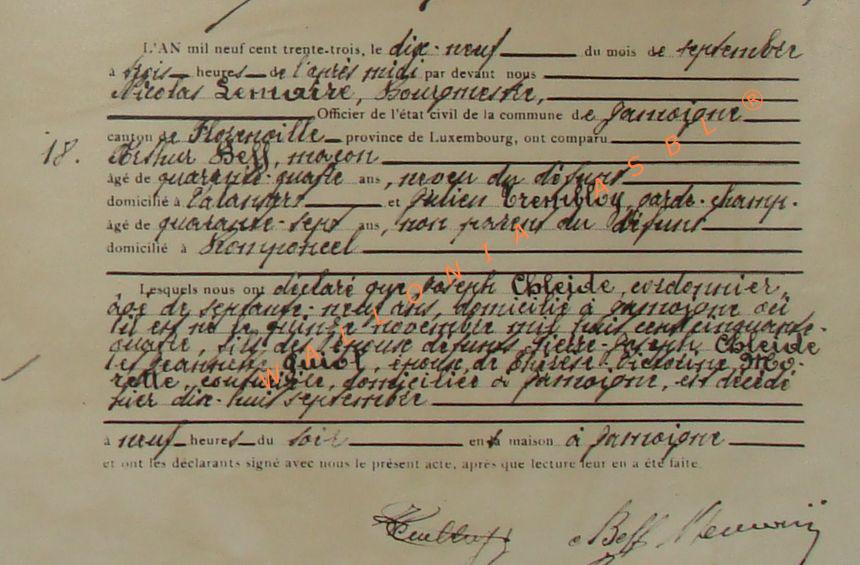 L'AN mil neuf cent trente-trois, le dix-neuf du mois de septembre
à trois heures de l'après midi par devant nous
Nicolas Lemaire, Bourgmestre,
Officier de l'état civil de la commune de Jamoigne
canton de Florenville province de Luxembourg, ont comparu
18. Arthur Beff, maçon
âgé de quarante-quatre ans, neveu du défunt
domicilié à et Julien Trembloy, garde-champ.
âgé de quarante-sept ans, non parent du défunt
domicilié à Romponcel
Lesquels nous ont déclaré que Joseph Chleide, cordonnier,
âgé de septante-neuf ans, domicilié à Jamoigne où
il est né le quinze novembre mil huit cent cinquante-
quatre, fils des époux défunts Pierre-Joseph Chleide
et Jeannette Guiot, époux de Thérèse Victorine Mo-
rette, couturière, domiciliée à Jamoigne, est décédé
hier dix-huit septembre
à neuf heures du soir en sa maison à Jamoigne
et ont les déclarants signé avec nous le présent acte, après que lecture leur en a été faite.
Beff
WALLONIA ASBL ®